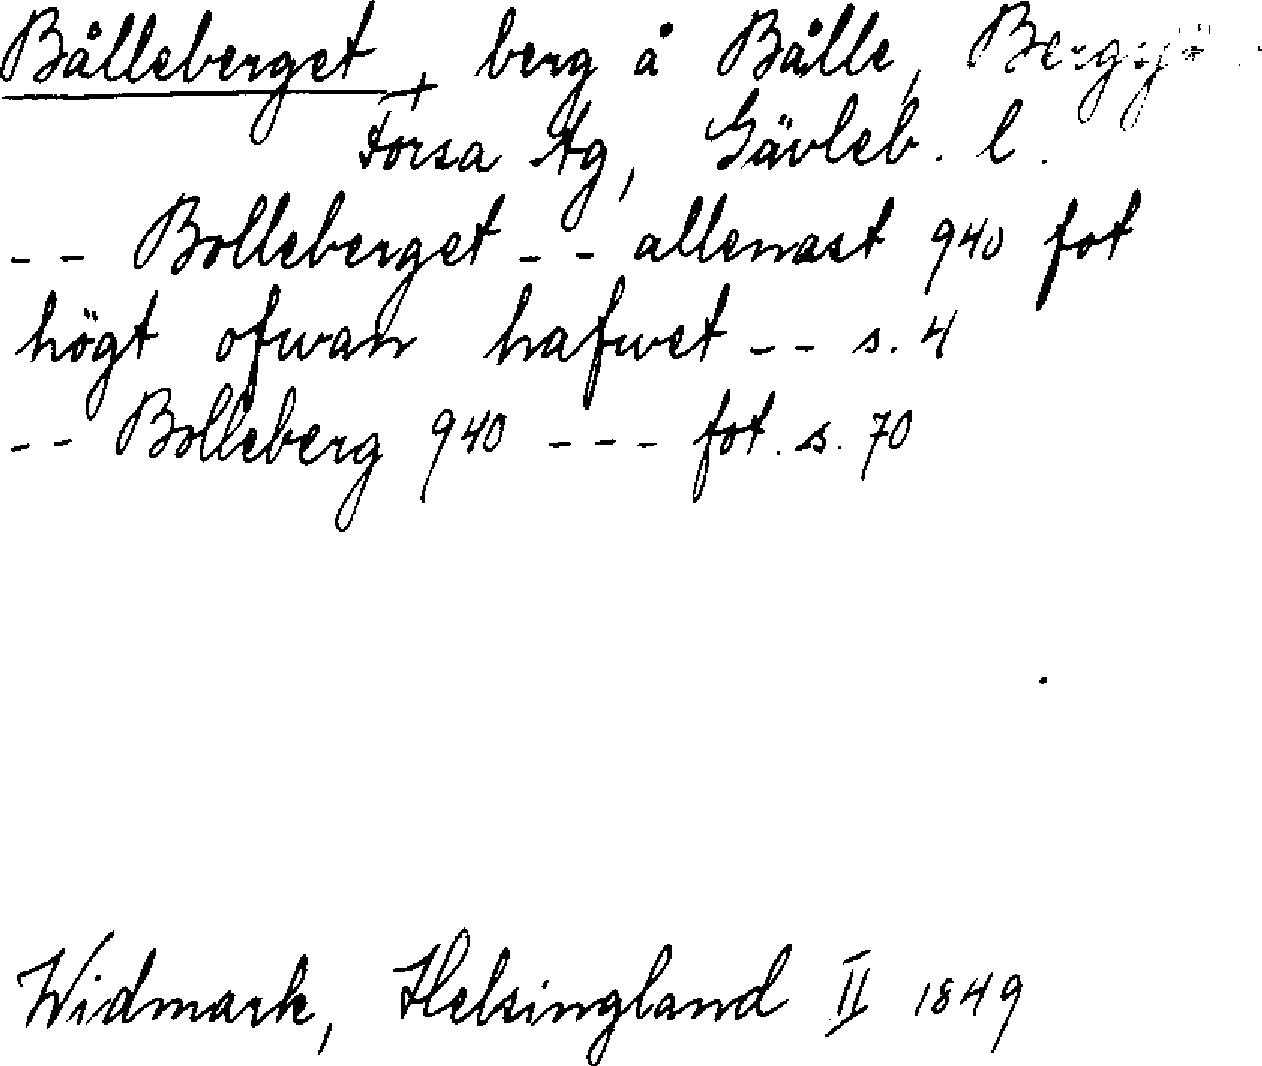 Bålleberget, berg å Bålle, Bergsjö
Forsa tg, Gävleb. l.
-- Bolleberget -- allenast 940 fot
högt ofwan hafwet -- s. 4
-- Bolleberg 940 --- fot. s. 70
Widmark, Helsingland II 1849